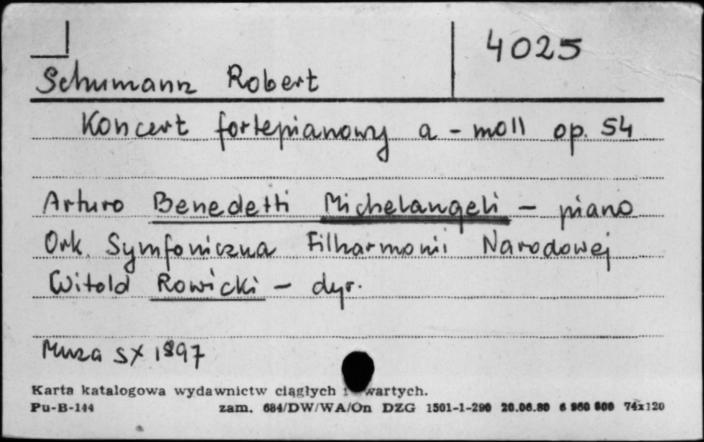 4025
Schumann Robert
Koncert fortepianowy a-moll op. 54
Arturo Benedetti Michelangeli – piano
Ork. Symfoniczna Filharmonii Narodowej
Witold Rowicki – dyr.
Muza SX 1897
Karta katalogowa wydawnictw ciągłych i wartych.
Pu-B-144 zam. 684/DW/WA/On DZG 1501-1-290 20.06.80 6 960 800 74x120